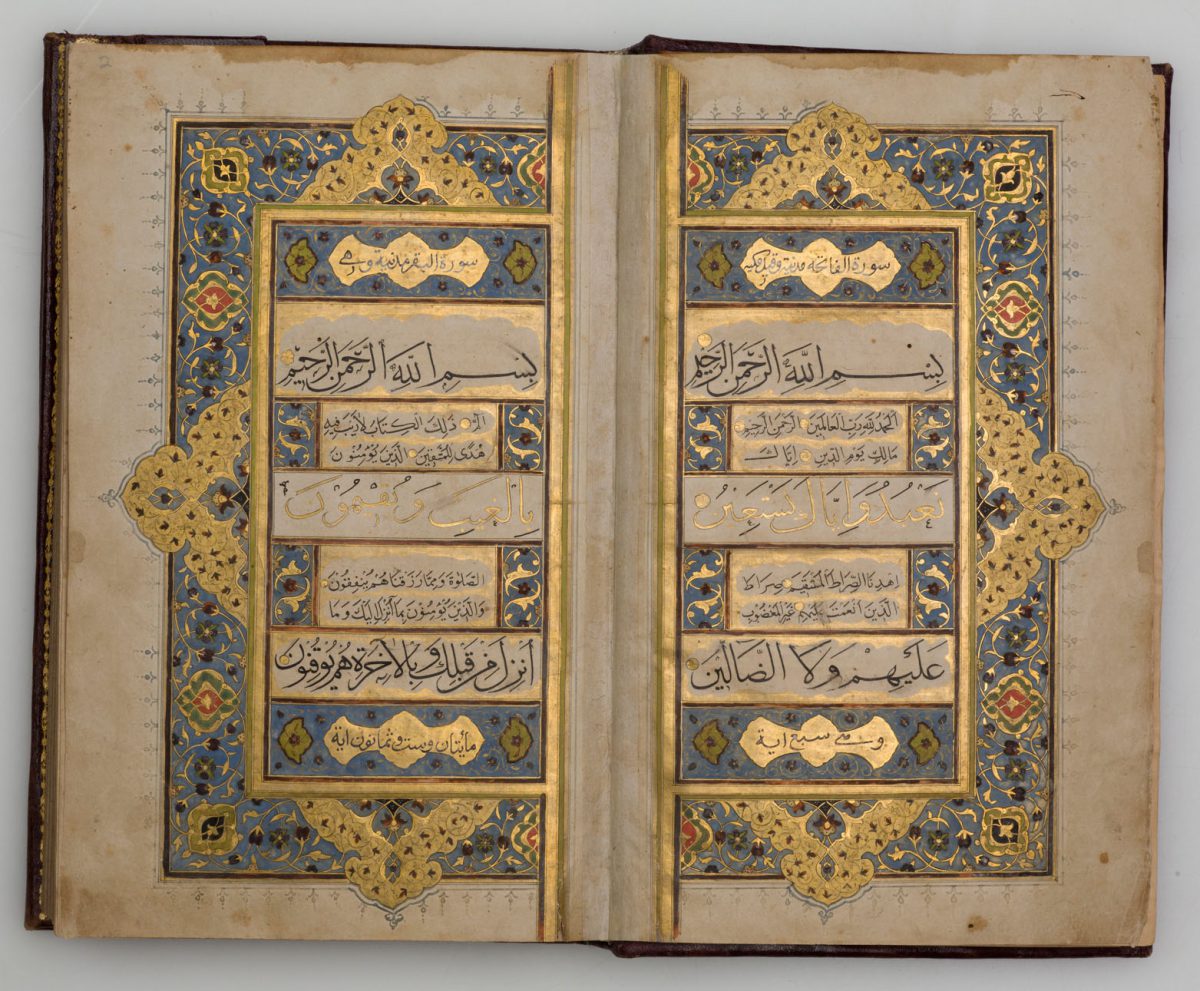 سورة الفاتحة مدنية وقيل مكية
بِسْمِ اللَّهِ الرَّحْمَنِ الرَّحِيمِ
اَلْحَمْدُ لِلَّهِ رَبِّ الْعَالَمِينَ الرَّحْمَنِ الرَّحِيمِ
مَالِكِ يَوْمِ الدِّينِ اِيَّاكَ
نَعْبُدُ وَاِيَّاكَ نَسْتَعِينُ
اِهْدِنَا الصِّرَاطَ الْمُسْتَقِيمَ صِرَاطَ
الَّذِينَ اَنْعَمْتَ عَلَيْهِمْ غَيْرِ الْمَغْضُوبِ
عَلَيْهِمْ وَلَا الضَّالِّينَ
وهي سبع اية
سورة البقر مدنية وهي
بِسْمِ اللَّهِ الرَّحْمَنِ الرَّحِيمِ
الم ذَلِكَ الْكِتَابُ لَا رَيْبَ فِيهِ
هُدًى لِلْمُتَّقِينَ الَّذِينَ يُؤْمِنُونَ
بِالْغَيْبِ وَيُقِيمُونَ
الصَّلٰوةَ وَمِمَّا رَزَقْنَاهُمْ يُنْفِقُونَ
وَالَّذِينَ يُؤْمِنُونَ بِمَا اُنْزِلَ اِلَيْكَ وَمَا
أُنْزِلَ مِنْ قَبْلِكَ وَبِالْاٰخِرَةِ هُمْ يُوقِنُونَ
مائتان وست وثمانون اية